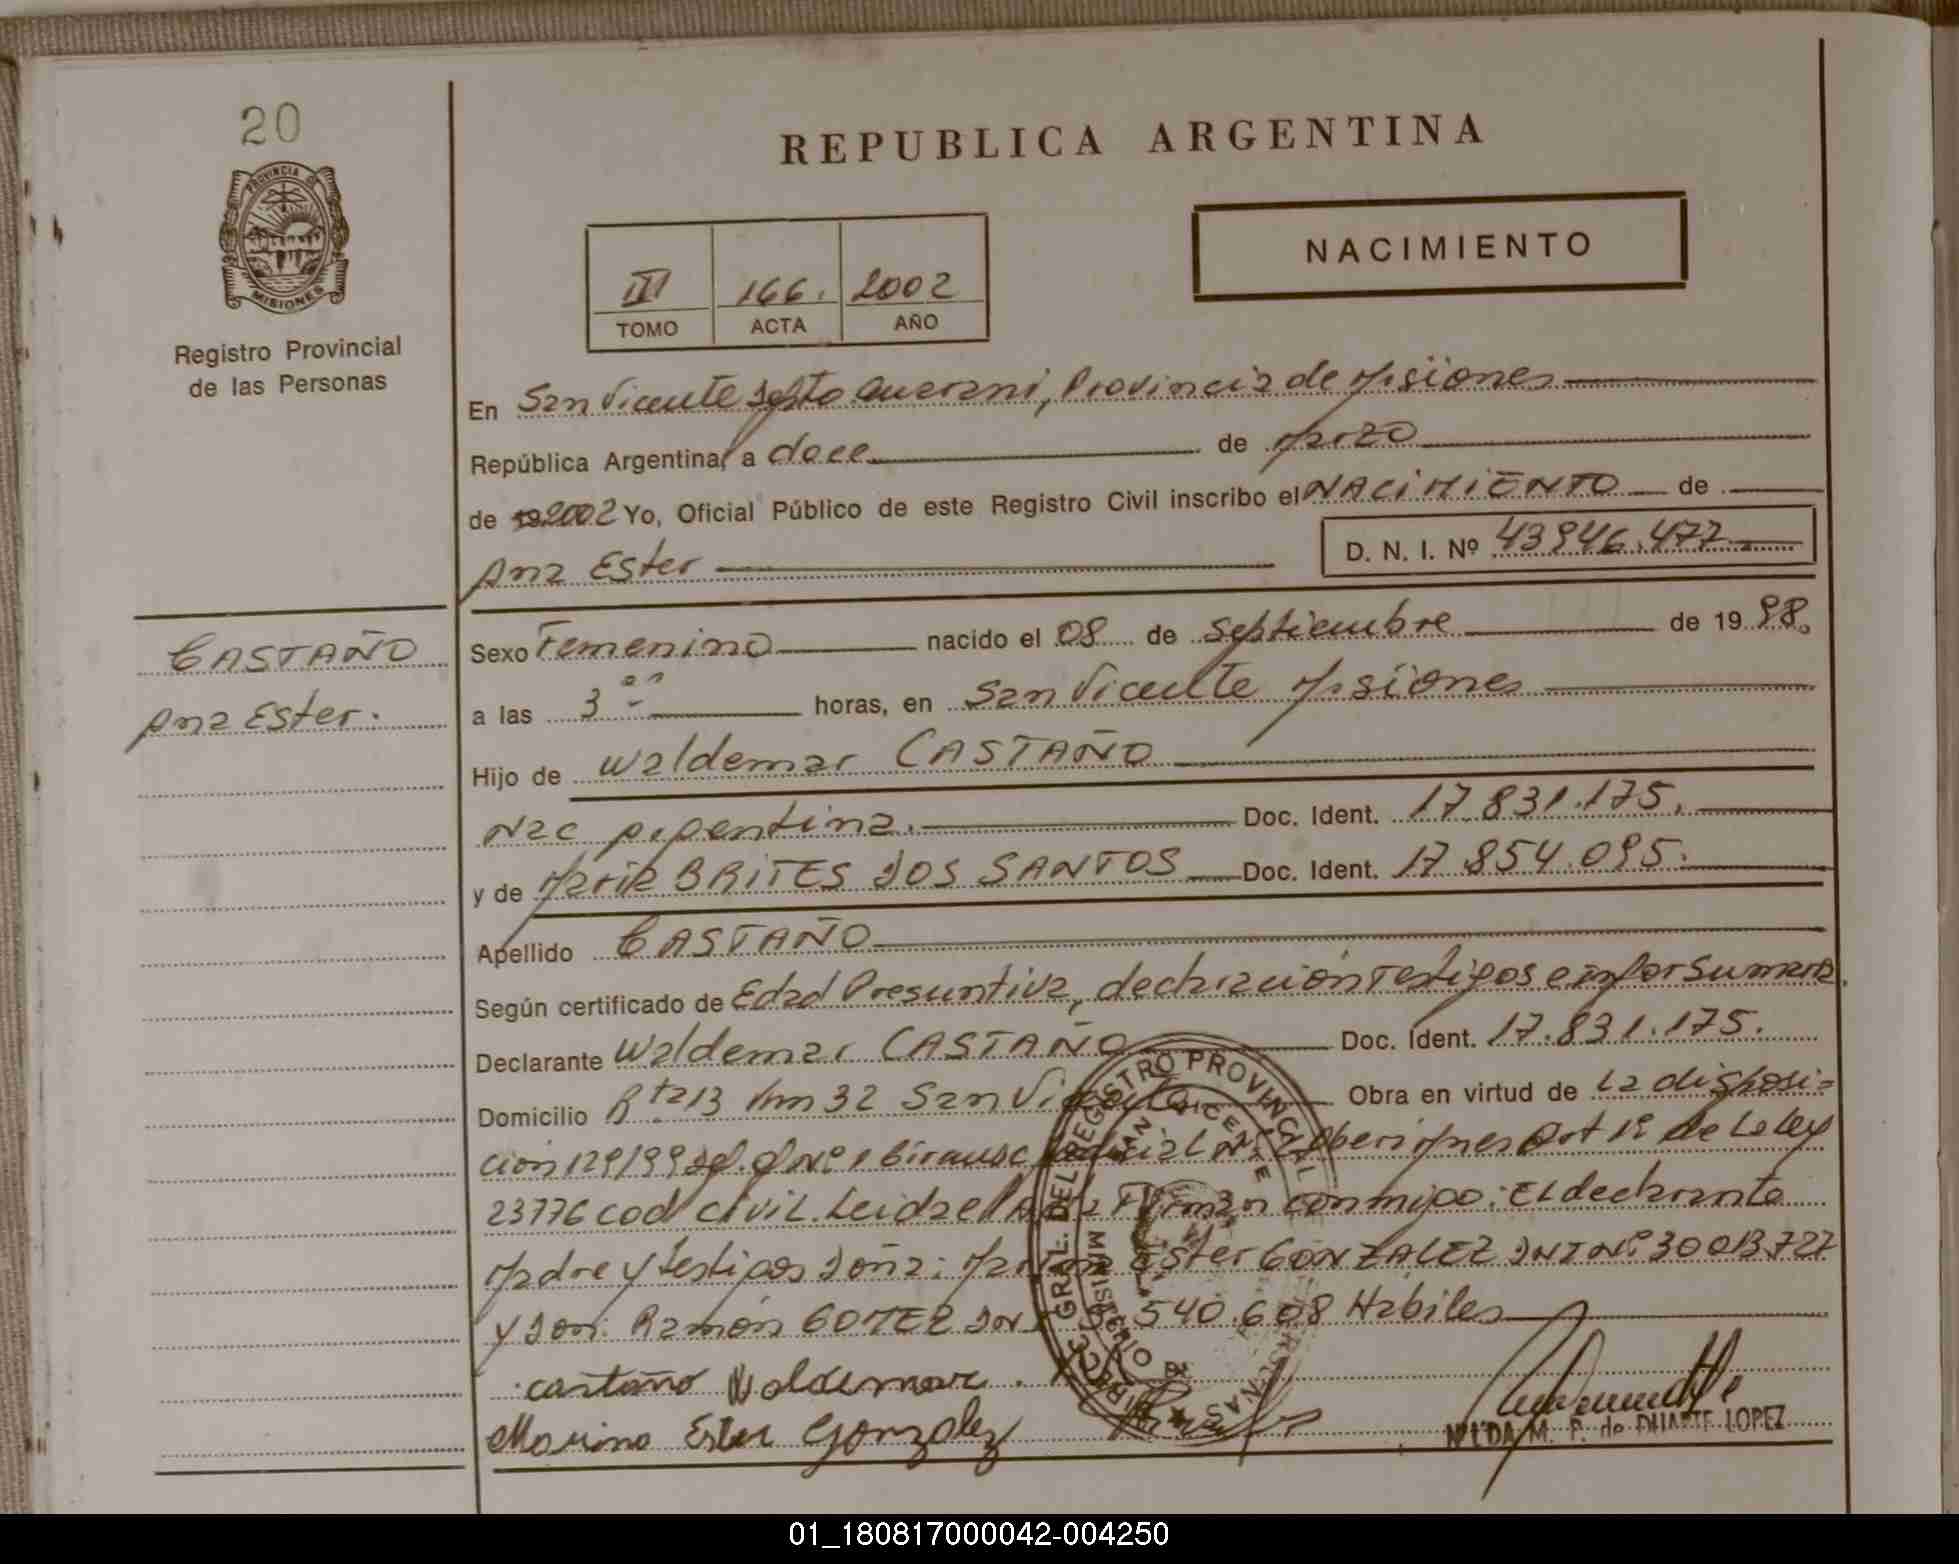 20
PROVINCIA DE
MISIONES
Registro Provincial
de las Personas
REPUBLICA ARGENTINA
NACIMIENTO
III 166. 2002
TOMO ACTA AÑO
En San Vicente Dpto Guarani, Provincia de Misiones
República Argentina, a doce de Marzo
de 19 2002 Yo, Oficial Público de este Registro Civil inscribo el NACIMIENTO de
Ana Ester D. N. I. Nº 43946.477
CASTAÑO
Ana Ester.
Sexo Femenino nacido el 08 de Septiembre de 19 98.
a las 3 horas, en San Vicente Misiones
Hijo de Waldemar CASTAÑO
Nac Argentina. Doc. Ident. 17.831.175.
y de Maria BRITES DOS SANTOS Doc. Ident. 17.854.095.
Apellido CASTAÑO
Según certificado de Edad Presuntiva, declaración Testigos e infor Sumaria.
Declarante Waldemar CASTAÑO Doc. Ident. 17.831.175.
Domicilio Rta 13 Km 32 San Vicente Obra en virtud de La disposi=
ción 129/99 Nº 1 Obera Mnes Art 1º de La Ley
23776 cod civil. Leida el Acta Firman conmigo: El declarante
Madre y testigos Doña: Marina Ester GONZALEZ DNI Nº 30013727
y Don: Ramón GOMEZ DNI 540.608 Habiles
castaño Waldemar
Marina Ester Gonzalez
M. P. de DUARTE LOPEZ
DIREC. GRAL. DEL REGISTRO PROVINCIAL
SAN VICENTE
MINISTERIO
01_180817000042-004250